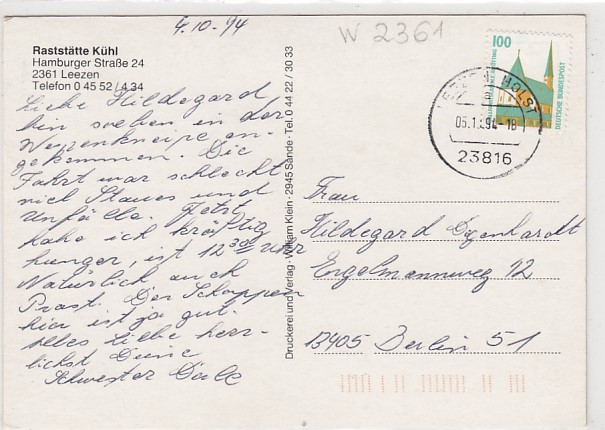 4.10.94
W 2361
Raststätte Kühl
Hamburger Straße 24
2361 Leezen
Telefon 0 45 52 / 4 34
Liebe Hildegard
bin soeben in der
an-
gekommen. Die
Fahrt war schlecht
viel Staus und
Unfälle. Jetzt
habe ich kräftig
hunger, ist 12 30 Uhr
Natürlich auch
Prost. Der Schoppen
hier ist ja gut.
Alles Liebe herz-
lichst Deine
Schwester
Druckerei und Verlag · William Klein · 2945 Sande · Tel. 0 44 22 / 30 33
100
DEUTSCHE BUNDESPOST
LEEZEN, HOLST
94-18
23816
Frau
Hildegard Degenhardt
Engelmannweg 12
13405 Berlin 51